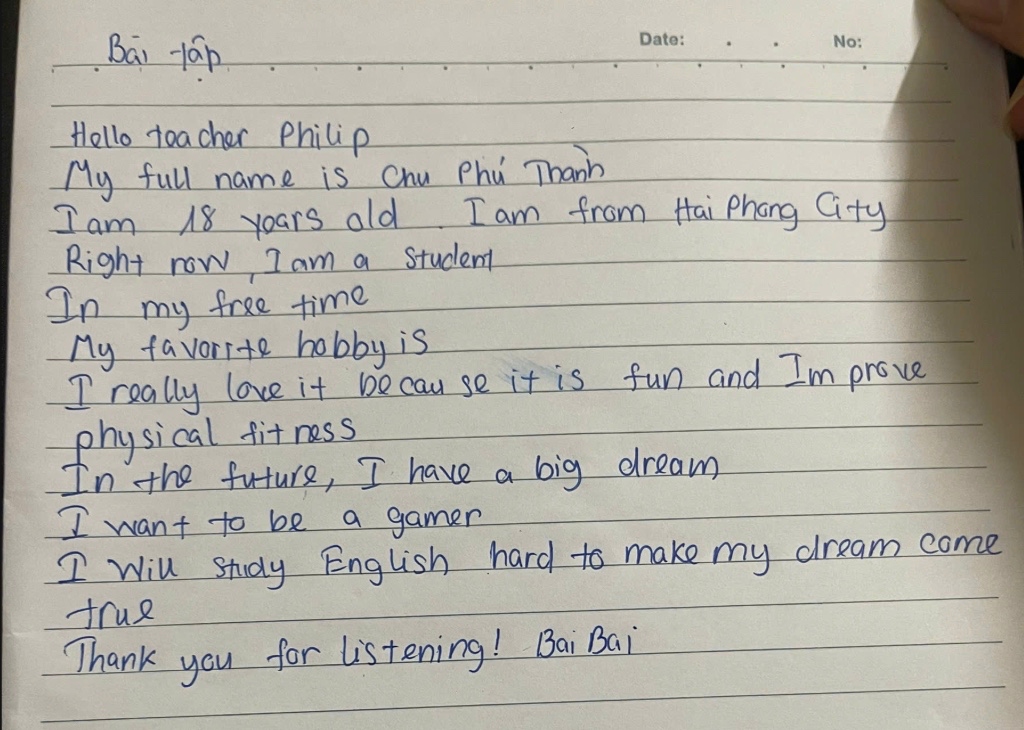 Bài tập
Date: . . No:
Hello teacher Philip
My full name is Chu Phú Thành
I am 18 years old. I am from Hai Phong City
Right now, I am a student
In my free time
My favorite hobby is
I really love it because it is fun and Improve
physical fitness
In the future, I have a big dream
I want to be a gamer
I Will study English hard to make my dream come
true
Thank you for listening! Bai Bai